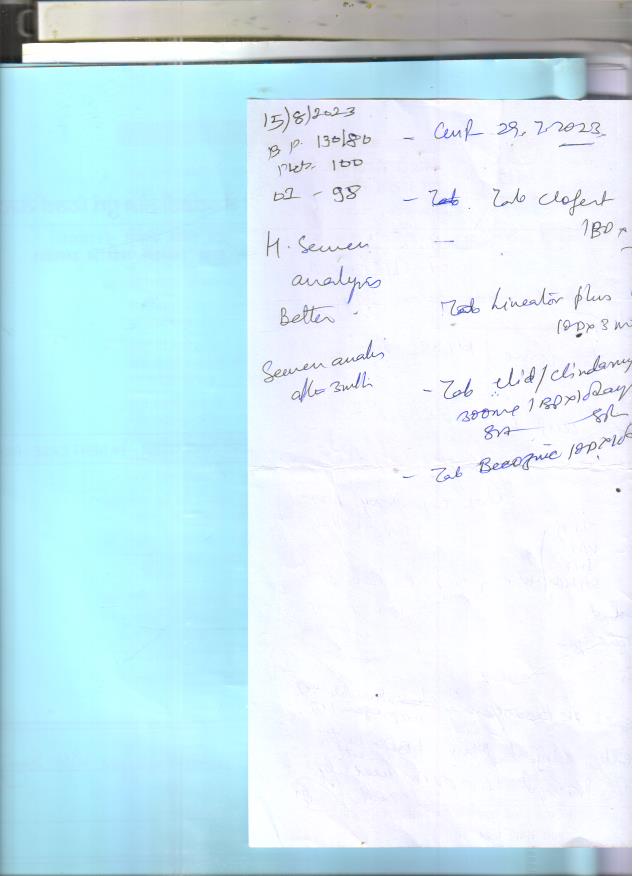 15/8/2023
B P. 130/80
100
02 - 98
H. Semen
analysis
Better
Semen analis
after 3 mth
- 29.7.2023
- Tab Tab clofert
1BD x
-
Tab Lineator plus
1OD x 3 m
- Tab Clid/Clindamy
300mg 1BD x 10day
8A 8P
- Tab Becozinc 1OD x